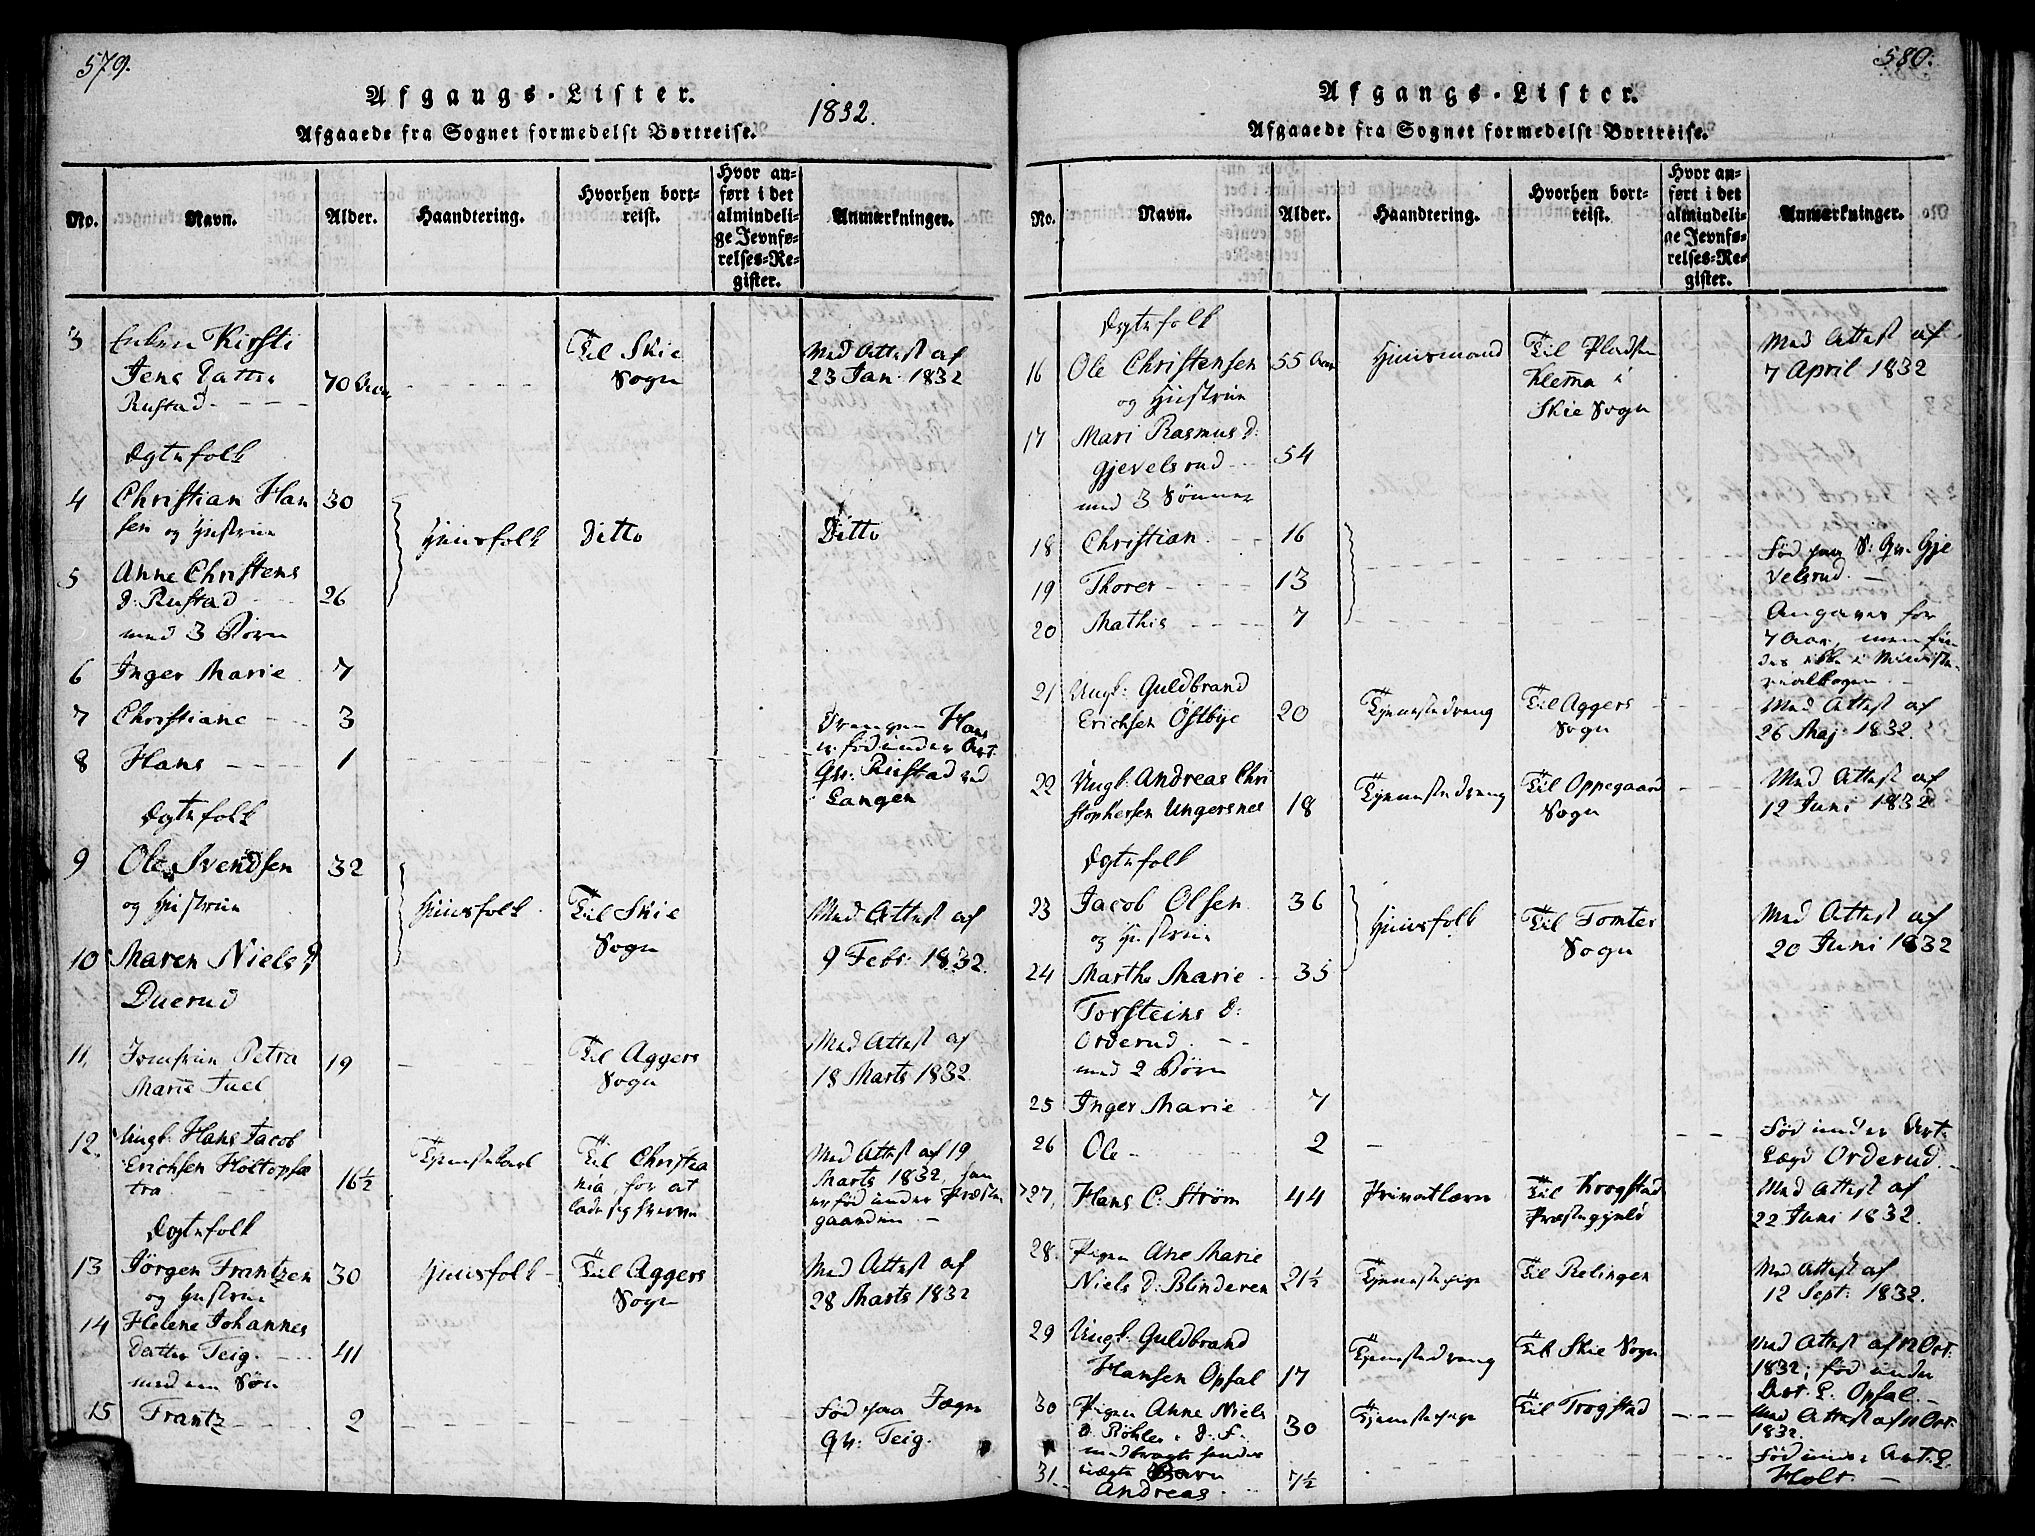 579.
Afgangs-Lister.
1832.
Afgaaede fra Sognet formedelst Bortreise.
No.
Navn.
Alder.
Haandtering.
Hvorhen bort-
reist.
Hvor an-
ført i det
almindeli-
ge Jevnfø-
relses-Re-
gister.
Anmærkninger.
3 Enken Kirsti
Jens Datter 70 Aar Til Skie Med Attest af
Rustad Sogn 23 Jan: 1832
Ægtefolk
4 Christian Han 30
sen og Hustrue Huusfolk Ditto Ditto
5 Anne Christens
D: Rustad 26
med 3 Børn
6 Inger Marie 7
7 Christiane 3
8 Hans 1 Drengen Hans
er fød under Art.
Qv: Rustad ved
Langen
Ægtefolk
9 Ole Svendsen 32
og Hustrue Huusfolk Til Skie Med Attest af
10 Maren Niels D: Sogn 9 Febr: 1832.
Duerud
11. Jomfrue Petra 19 Til Aggers Med Attest af
Marie Juel. Sogn 18 Marts 1832.
12. Ungk: Hans Jacob
Erichsen Holtopsæ 16½ Tjenestekarl Til Christia Med Attest af 19
tra nia, for at Marts 1832, han
lade sig hverve er fød under Præste
gaarden
Ægtefolk
13 Jørgen Frantzen 30 Huusfolk Til Aggers Med Attest af
og Hustrue Sogn 28 Marts 1832
14 Helene Johannes
Datter Teig. 41
med een Søn
15 Frantz 2 Fød paa
Qv: Teig.
580.
Afgangs-Lister.
Afgaaede fra Sognet formedelst Bortreise.
No.
Navn.
Alder.
Haandtering.
Hvorhen bort-
reist.
Hvor an-
ført i det
almindeli-
ge Jevnfø-
relses-Re-
gister.
Anmærkninger.
Ægtefolk
16 Ole Christensen 55 Aar Huusmand Til Pladsen Med Attest af
og Hustrue Klem̄a i 7 April 1832
Skie Sogn
17 Mari Rasmus D:
Gjevelsrud 54
med 3 Sønner
18 Christian 16 Fød paa S: Qv. Gje
19 Thorer 13 velsrud.
20 Mathis 7 Angaves for
7 Aar, men fin
des ikke i Ministe
rialbogen.
21 Ungk: Guldbrand
Erichsen Östbye 20 Tjenestedreng Til Aggers Med Attest af
Sogn 26 Maj 1832.
22 Ungk: Andreas Chri
stophersen Ungersnes 18 Tjenestedreng Til Oppegaard Med Attest af
Sogn 12 Juni 1832
Ægtefolk
23 Jacob Olsen 36
og Hustrue Huusfolk Til Tomter Med Attest af
Sogn 20 Juni 1832
24 Marthe Marie 35
Torsteins D:
Orderud.
med 2 Børn
25 Inger Marie 7
26 Ole 2 Fød under Art.
Lægd Orderud.
27. Hans C: Strøm 44 Privatlærer Til Krogstad Med Attest af
Præstegjeld 22 Juni 1832.
28. Pigen Ane Marie
Niels D: Blinderen 21½ Tjenestepige Til Relingen Med Attest af
12 Sept: 1832.
29 Ungk: Guldbrand
Hansen Opsal 17 Tjenestedreng Til Skie Sogn Med Attest af 12 Oct:
1832; fød under
Art. L. Opsal.
30 Pigen Anne Niels
D: 30 Tjenestepige Til Trogstad Med Attest af 12 Oct:
1832.
medbragte hendes
31. uægte Barn
Andreas 7½ Fød under Art. L.
Holt.